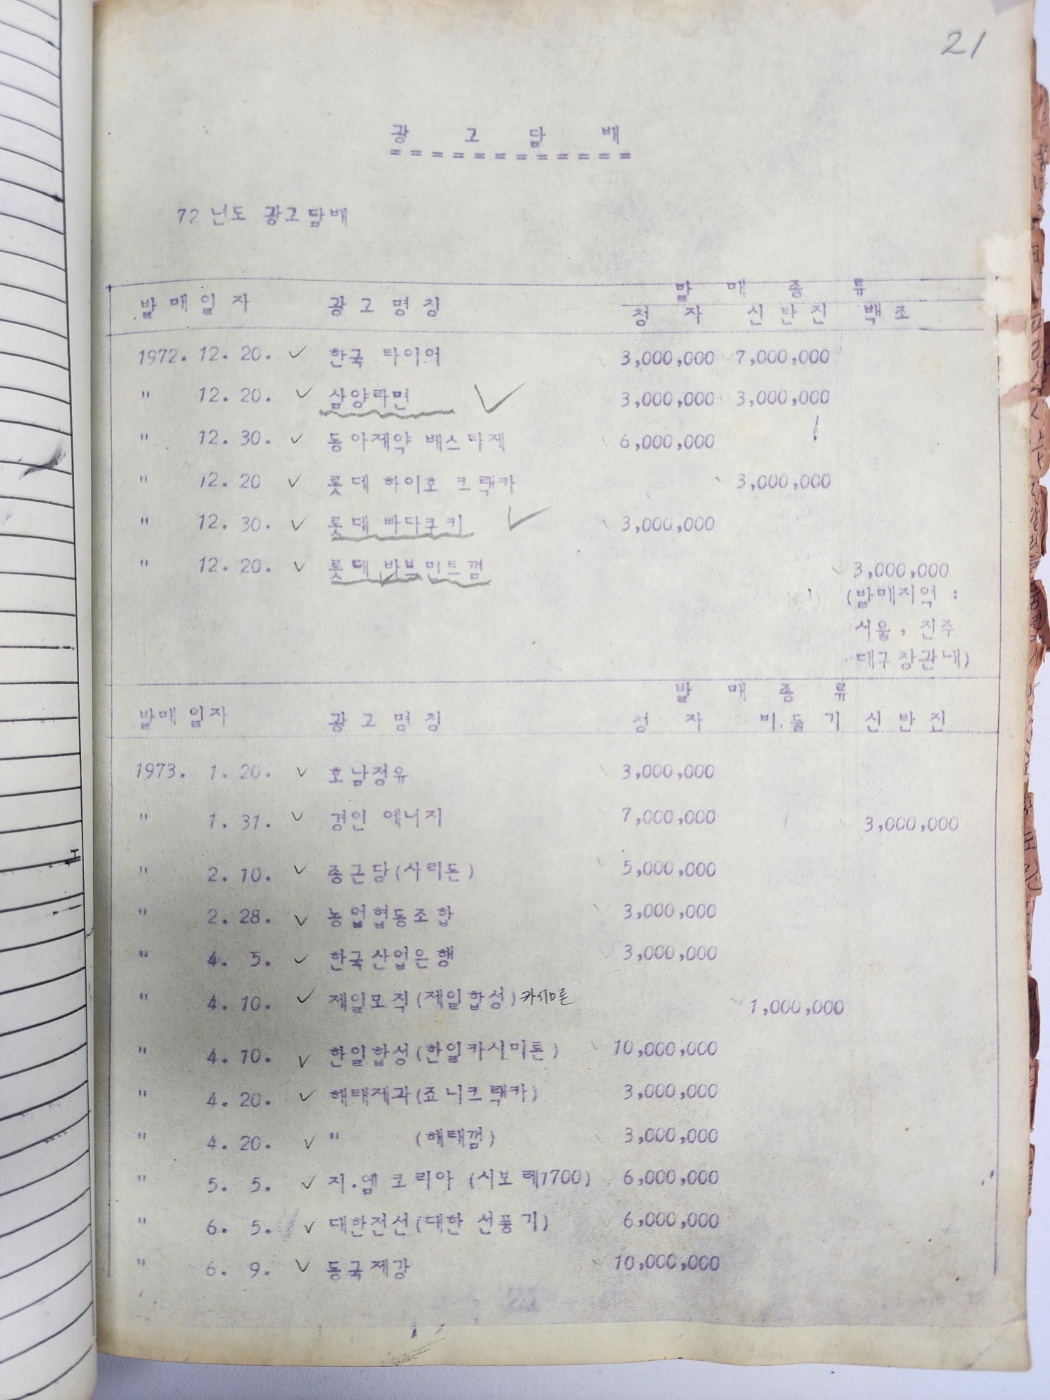 21
광 고 담 배
72 년도 광고담배
발 매 종 류
발매일자 광고명칭 청 자 신탄진 백조
1972. 12. 20. 한국 타이어 3,000,000 7,000,000
" 12. 20. 삼양라면 3,000,000 3,000,000
" 12. 30. 동아제약 배스타제 6,000,000
" 12. 20 롯데 하이호 크랙카 3,000,000
" 12. 30. 롯데 빠다쿠키 3,000,000
" 12. 20. 롯데 바부민트껌 3,000,000
(발매지역 :
서울, 진주
대구 장관내)
발 매 종 류
발매 일자 광고명칭 청 자 비둘기 신탄진
1973. 1. 20. 호남정유 3,000,000
" 1. 31. 경인 에너지 7,000,000 3,000,000
" 2. 10. 종근당(사리돈) 5,000,000
" 2. 28. 농업협동조합 3,000,000
" 4. 5. 한국산업은행 3,000,000
" 4. 10. 제일모직(제일합성) 카시미론 1,000,000
" 4. 10. 한일합성(한일카시미론) 10,000,000
" 4. 20. 해태제과(죠니크랙카) 3,000,000
" 4. 20. " (해태껌) 3,000,000
" 5. 5. 지.엠 코리아 (시보레1700) 6,000,000
" 6. 5. 대한전선(대한 선풍기) 6,000,000
" 6. 9. 동국제강 10,000,000